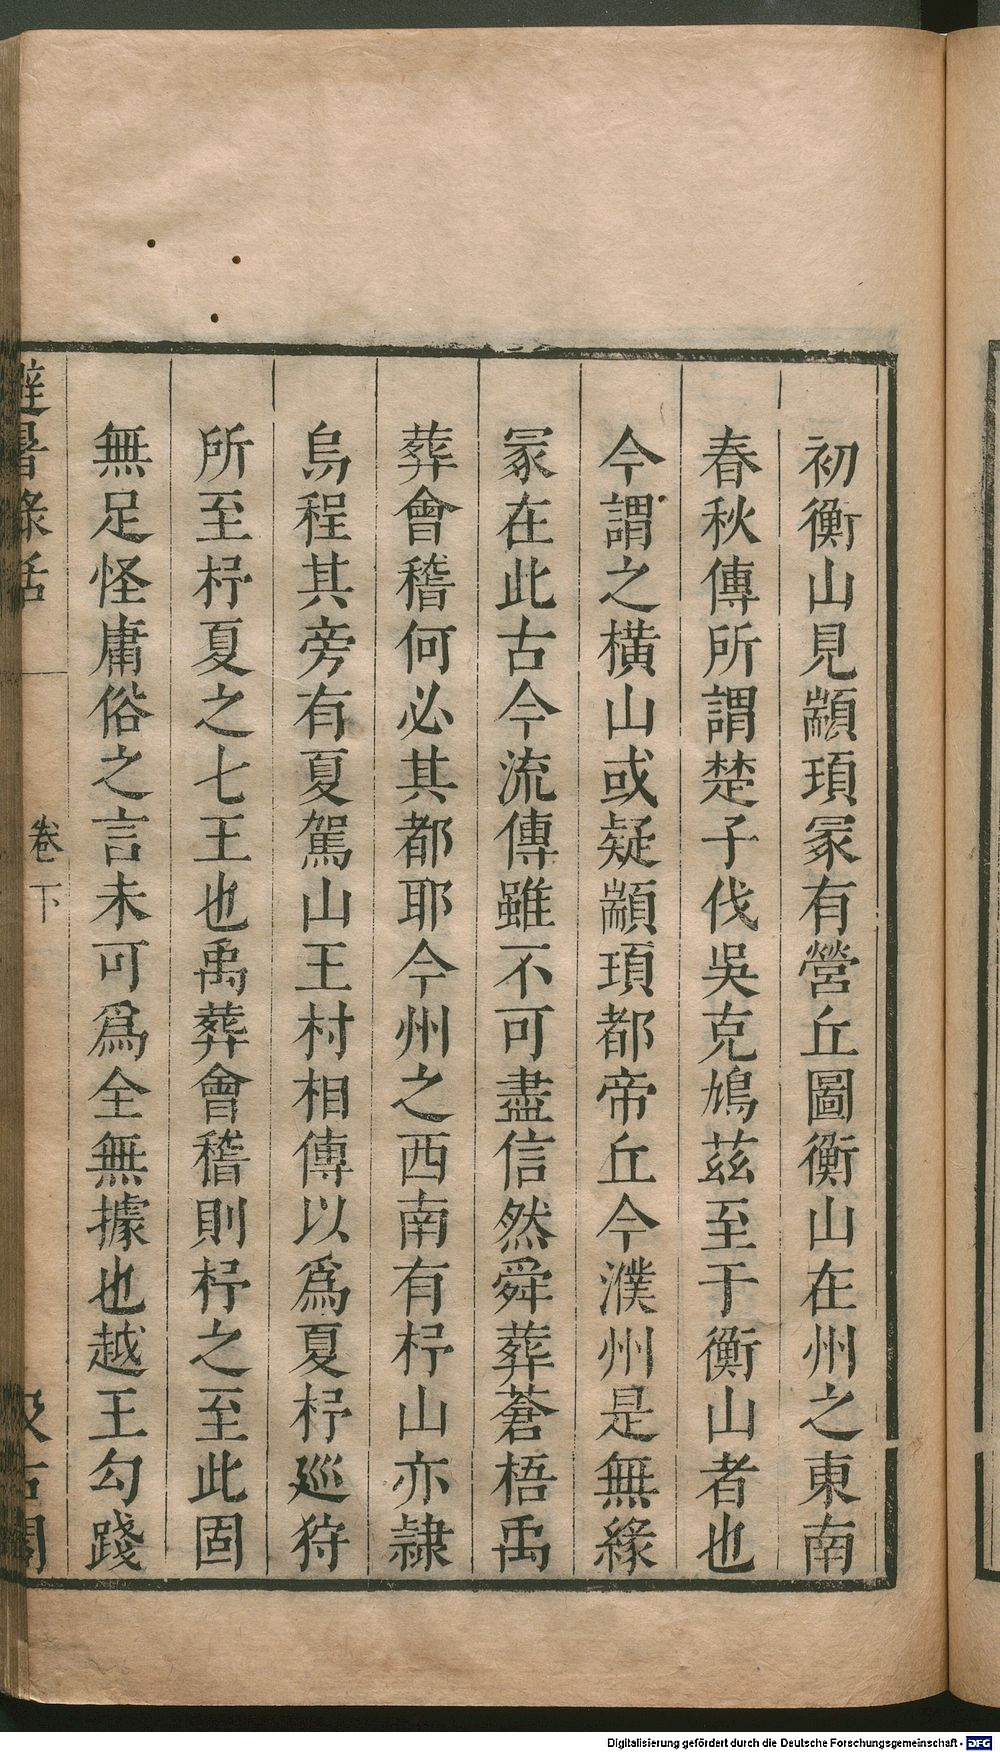 初衡山見顓頊冢有營丘圖衡山在州之東南
春秋傳所謂楚子伐吳克鳩茲至于衡山者也
今謂之橫山或疑顓頊都帝丘今濮州是無緣
冢在此古今流傳雖不可盡信然舜葬蒼梧禹
葬會稽何必其都耶今州之西南有杼山亦隷
烏程其旁有夏駕山王村相傳以爲夏杼廵狩
所至杼夏之七王也禹葬會稽則杼之至此固
無足怪庸俗之言未可爲全無據也越王勾踐
避暑錄話
卷下
汲古閣
Digitalisierung gefördert durch die Deutsche Forschungsgemeinschaft - DFG